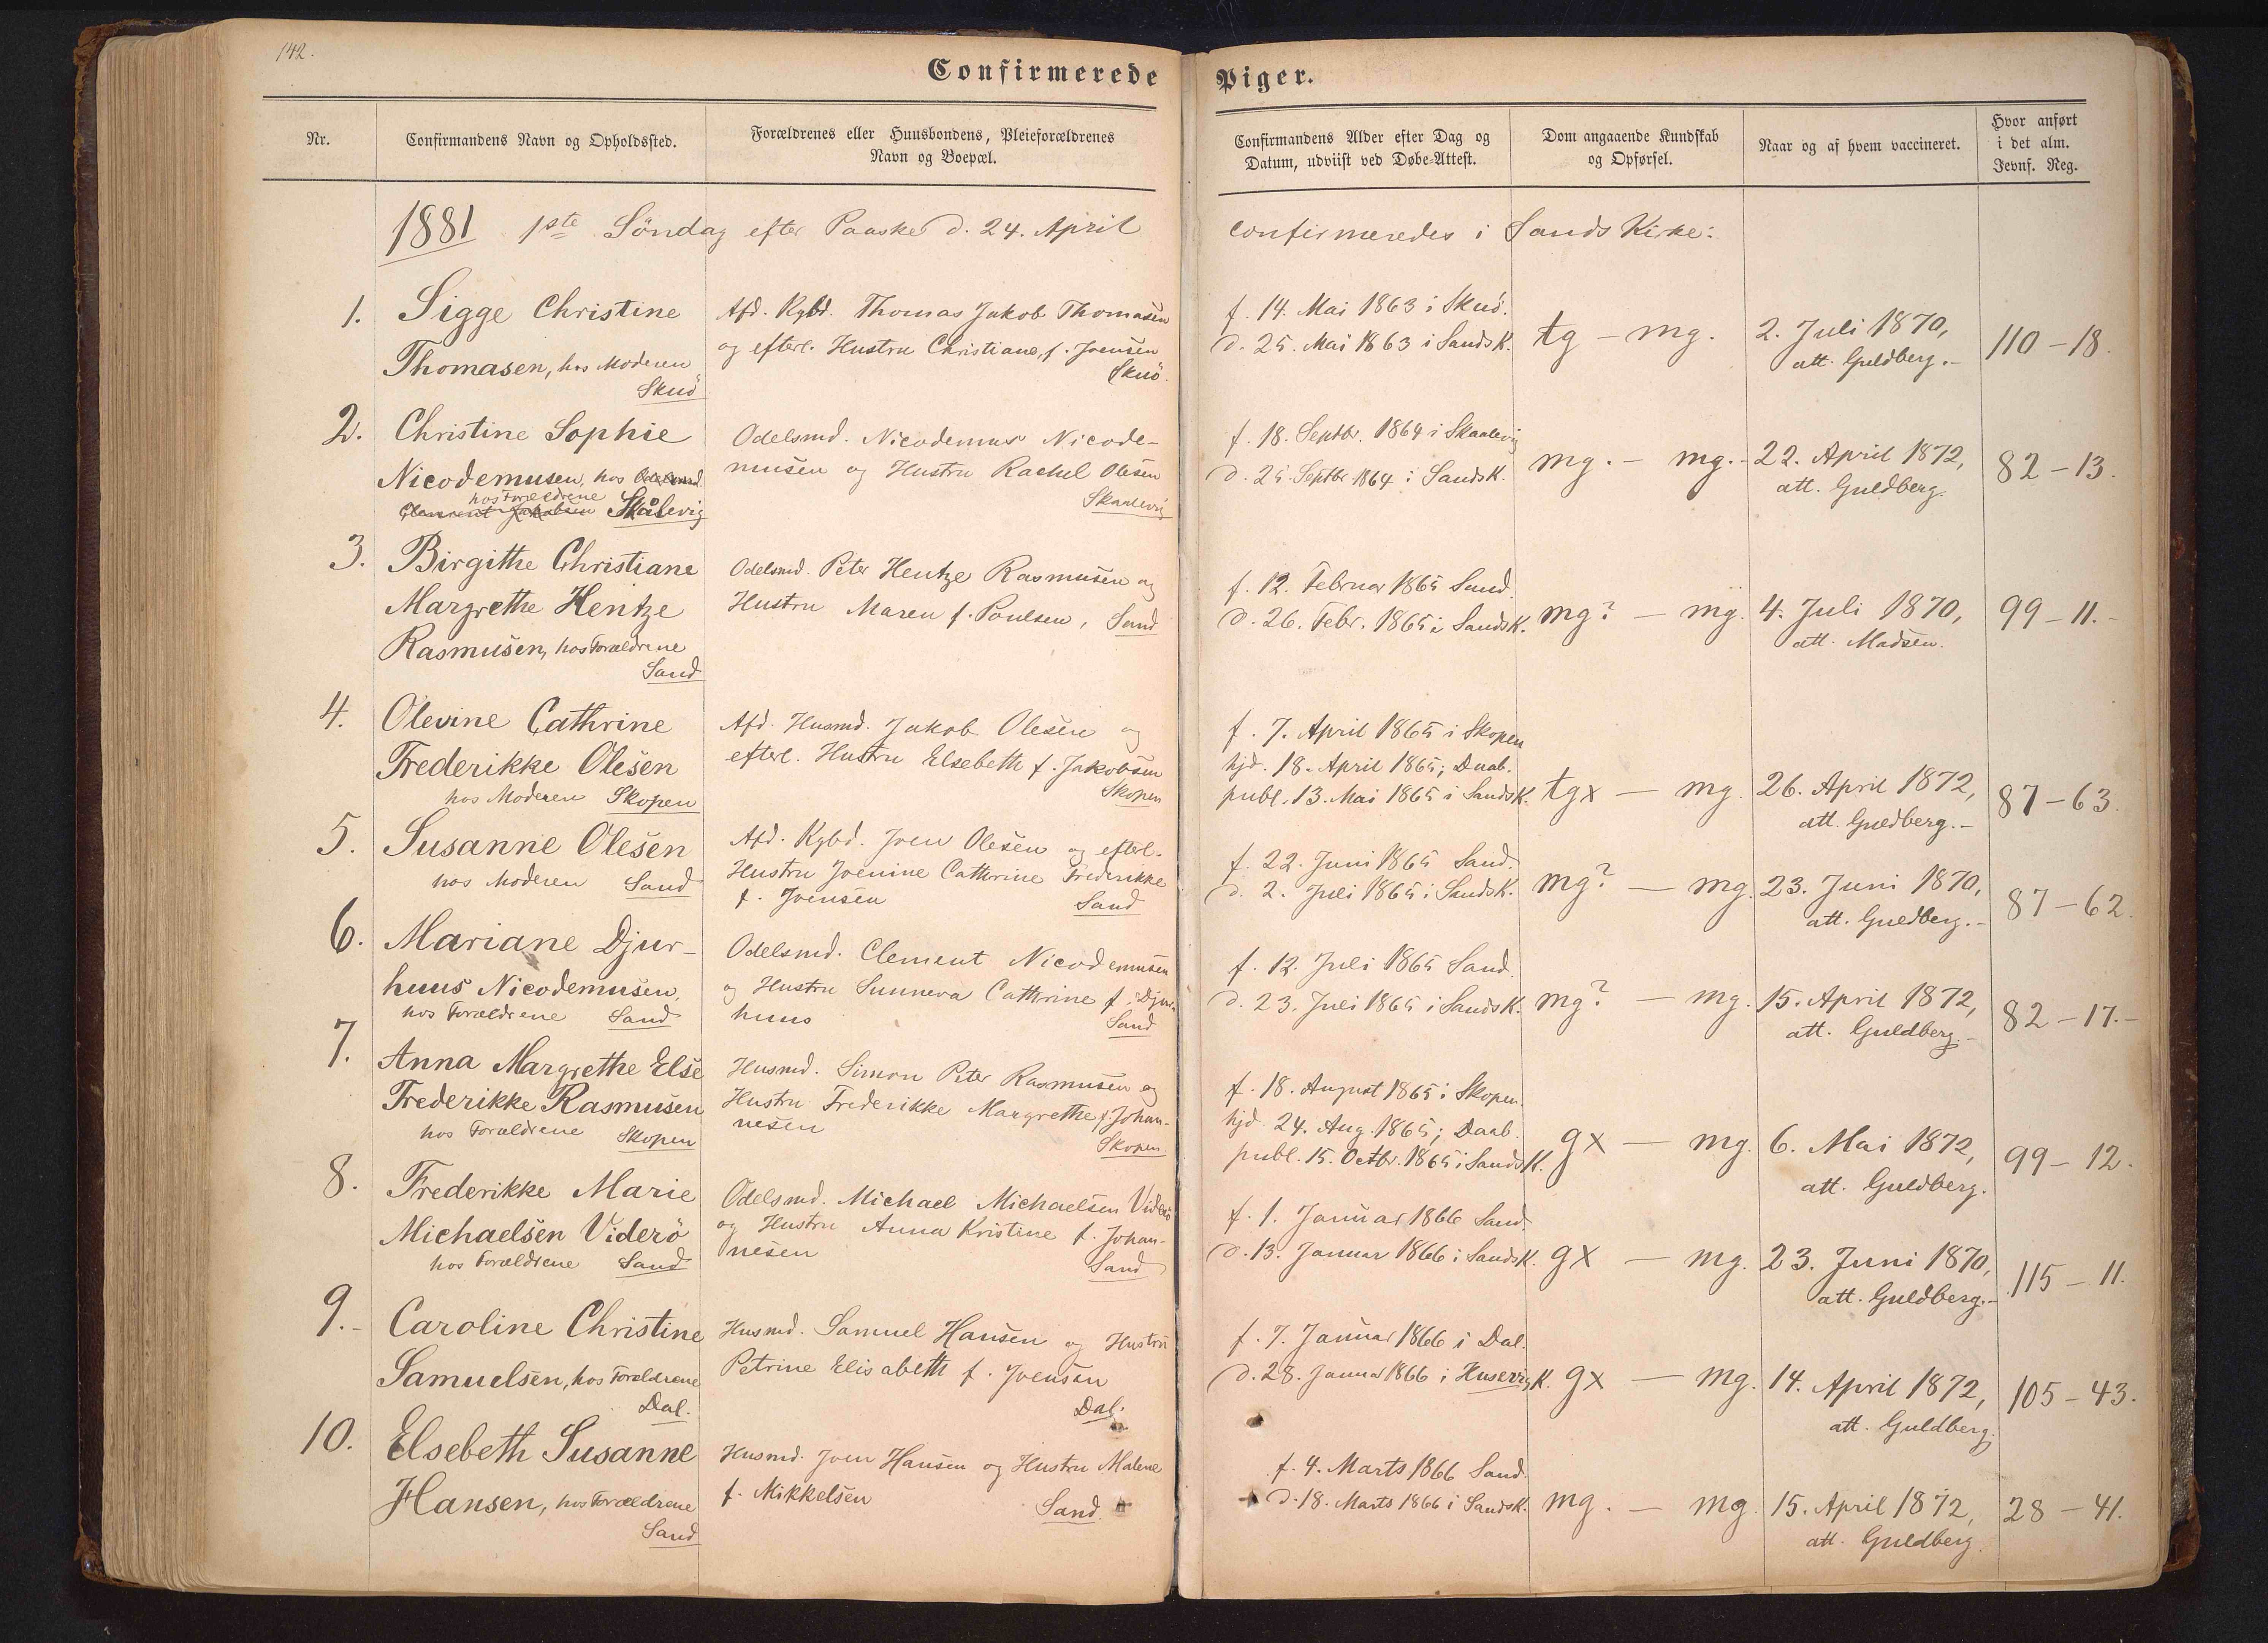 142.
Confirmerede Piger.
Nr.
Confirmandens Navn og Opholdssted.
Forældrenes eller Huusbondens, Pleieforældrenes
Navn og Boepæl.
Confirmandens Alder efter Dag og
Datum, udviist ved Døbe-Attest.
Dom angaaende Kundskab
og Opførsel.
Naar og af hvem vaccineret.
Hvor anført
i det alm.
Jevnf. Reg.
1881 1ste Söndag efter Paaske d. 24. April confirmeredes i Sands Kirke:
1.
Sigge Christine
Thomasen, hos Moderen
Skuö
Afd. Kgbd. Thomas Jakob Thomasen
og efterl. Hustru Christiane, f. Joensen
Skuö.
f. 14. Mai 1863 i Skuö.
d. 25. Mai 1863 i Sands K.
tg – mg.
2. Juli 1870,
att. Guldberg. –
110 – 18.
2.
Christine Sophie
Nicodemusen, hos Odelsmd.
hos Forældrene
Clement Jakobsen Skålevig
Odelsmd. Nicodemus Nicode-
musen og Hustru Rachel Olesen
Skaalevig
f. 18. Septbr. 1864 i Skaalevig
d. 25. Septbr 1864 i Sands K.
mg. – mg. –
22. April 1872,
att. Guldberg.
82 – 13.
3.
Birgithe Christiane
Margrethe Hentze
Rasmusen, hos Forældrene
Sand
Odelsmd. Peter Hentze Rasmusen og
Hustru Maren f. Poulsen, Sand
f. 12. Februar 1865 Sand.
d. 26. Febr. 1865 i Sands K.
mg? – mg.
4. Juli 1870,
att. Madsen.
99 – 11. –
4.
Olevine Cathrine
Frederikke Olesen
hos Moderen Skopen
Afd. Husmd. Jakob Olesen og
efterl. Hustru Elsebeth f. Jakobsen
Skopen
f. 7. April 1865 i Skopen
hjd. 18. April 1865; Daab.
publ. 13. Mai 1865 i Sands K.
tgx – mg.
26. April 1872,
att. Guldberg. –
87 – 63.
5.
Susanne Olesen
hos Moderen Sand
Afd. Kgbd. Joen Olesen og efterl.
Hustru Joenine Cathrine Frederikke
f. Joensen Sand
f. 22. Juni 1865 Sand.
d. 2. Juli 1865 i Sands K.
mg? – mg.
23. Juni 1870,
att. Guldberg. –
87 – 62.
6.
Mariane Djur-
huus Nicodemusen,
hos Forældrene Sand
Odelsmd. Clement Nicodemusen
og Hustru Sunneva Cathrine f. Djur-
huus Sand
f. 12. Juli 1865 Sand.
d. 23. Juli 1865 i Sands K.
mg? – mg.
15. April 1872,
att. Guldberg. –
82 – 17. –
7.
Anna Margrethe Else
Frederikke Rasmusen
hos Forældrene Skopen
Husmd. Simon Peter Rasmusen og
Hustru Frederikke Margrethe f. Johan-
nesen
Skopen.
f. 18. August 1865 i Skopen.
hjd 24. Aug. 1865; Daab.
publ. 15. Octbr. 1865 i Sands K.
gx – mg.
6. Mai 1872,
att. Guldberg.
99 – 12.
8.
Frederikke Marie
Michaelsen Viderö
hos Forældrene Sand
Odelsmd. Michael Michaelsen Viderö
og Hustru Anna Kristine f. Johan-
nesen Sand
f. 1. Januar 1866 Sand.
d. 13. Januar 1866 i Sands K.
gx – mg.
23. Juni 1870,
att. Guldberg. –
115 – 11.
9. –
Caroline Christine
Samuelsen, hos Forældrene
Dal.
Husmd. Samuel Hansen og Hustru
Petrine Elisabeth f. Joensen
Dal.
f. 7. Januar 1866 i Dal.
d. 28. Januar 1866 i Husevig K.
gx – mg.
14. April 1872,
att. Guldberg.
105 – 43.
10.
Elsebeth Susanne
Hansen, hos Forældrene
Sand
Husmd. Joen Hansen og Hustru Malene
f. Mikkelsen
Sand.
f. 4. Marts 1866 Sand.
d. 18. Marts 1866 i Sands K.
mg. – mg.
15. April 1872,
att. Guldberg.
28 – 41.